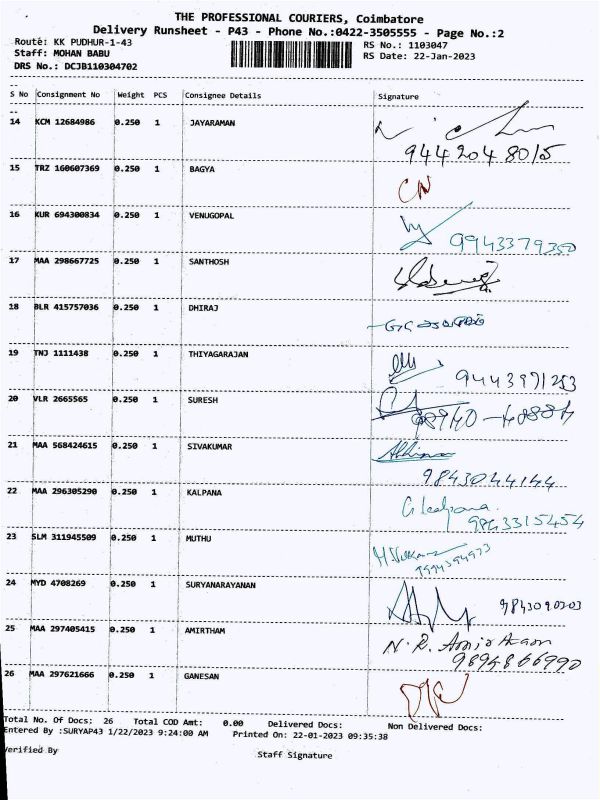 THE PROFESSIONAL COURIERS, Coimbatore
Delivery Runsheet - P43 - Phone No.:0422-3505555 - Page No.:2
Route: KK PUDHUR-1-43 RS No.: 1103047
Staff: MOHAN BABU RS Date: 22-Jan-2023
DRS No.: DCJB110304702
S No Consignment No Weight PCS Consignee Details Signature
14 KCM 12684986 0.250 1 JAYARAMAN
9442048015
15 TRZ 160607369 0.250 1 BAGYA
16 KUR 694300834 0.250 1 VENUGOPAL
9943379350
17 MAA 298667725 0.250 1 SANTHOSH
18 BLR 415757036 0.250 1 DHIRAJ
19 TNJ 1111438 0.250 1 THIYAGARAJAN
9443991253
20 VLR 2665565 0.250 1 SURESH
21 MAA 568424615 0.250 1 SIVAKUMAR
9843044144
22 MAA 296305290 0.250 1 KALPANA
9843315454
23 SLM 311945509 0.250 1 MUTHU
9994394973
24 MYD 4708269 0.250 1 SURYANARAYANAN
9843090203
25 MAA 297405415 0.250 1 AMIRTHAM
N. R.
9894866990
26 MAA 297621666 0.250 1 GANESAN
Total No. Of Docs: 26 Total COD Amt: 0.00 Delivered Docs: Non Delivered Docs:
Entered By :SURYAP43 1/22/2023 9:24:00 AM Printed On: 22-01-2023 09:35:38
erified By Staff Signature